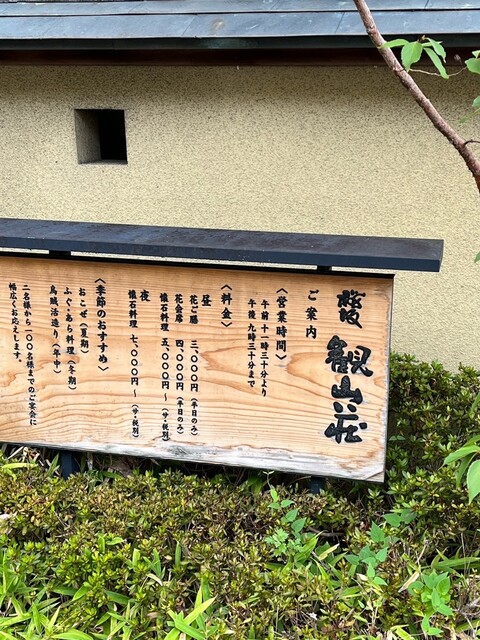 桜坂 観山荘
ご案内
〈営業時間〉
午前十一時三十分より
午後九時三十分まで
〈料金〉
昼
花ご膳 三、〇〇〇円（平日のみ）
花会席 四、〇〇〇円（平日のみ）
懐石料理 五、〇〇〇円〜（サ・税別）
夜
懐石料理 七、〇〇〇円〜（サ・税別）
〈季節のおすすめ〉
おこぜ（夏期）
ふぐ・あら料理（冬期）
烏賊活造り（年中）
二名様から一〇〇名様までのご宴会に
幅広くお応えします。